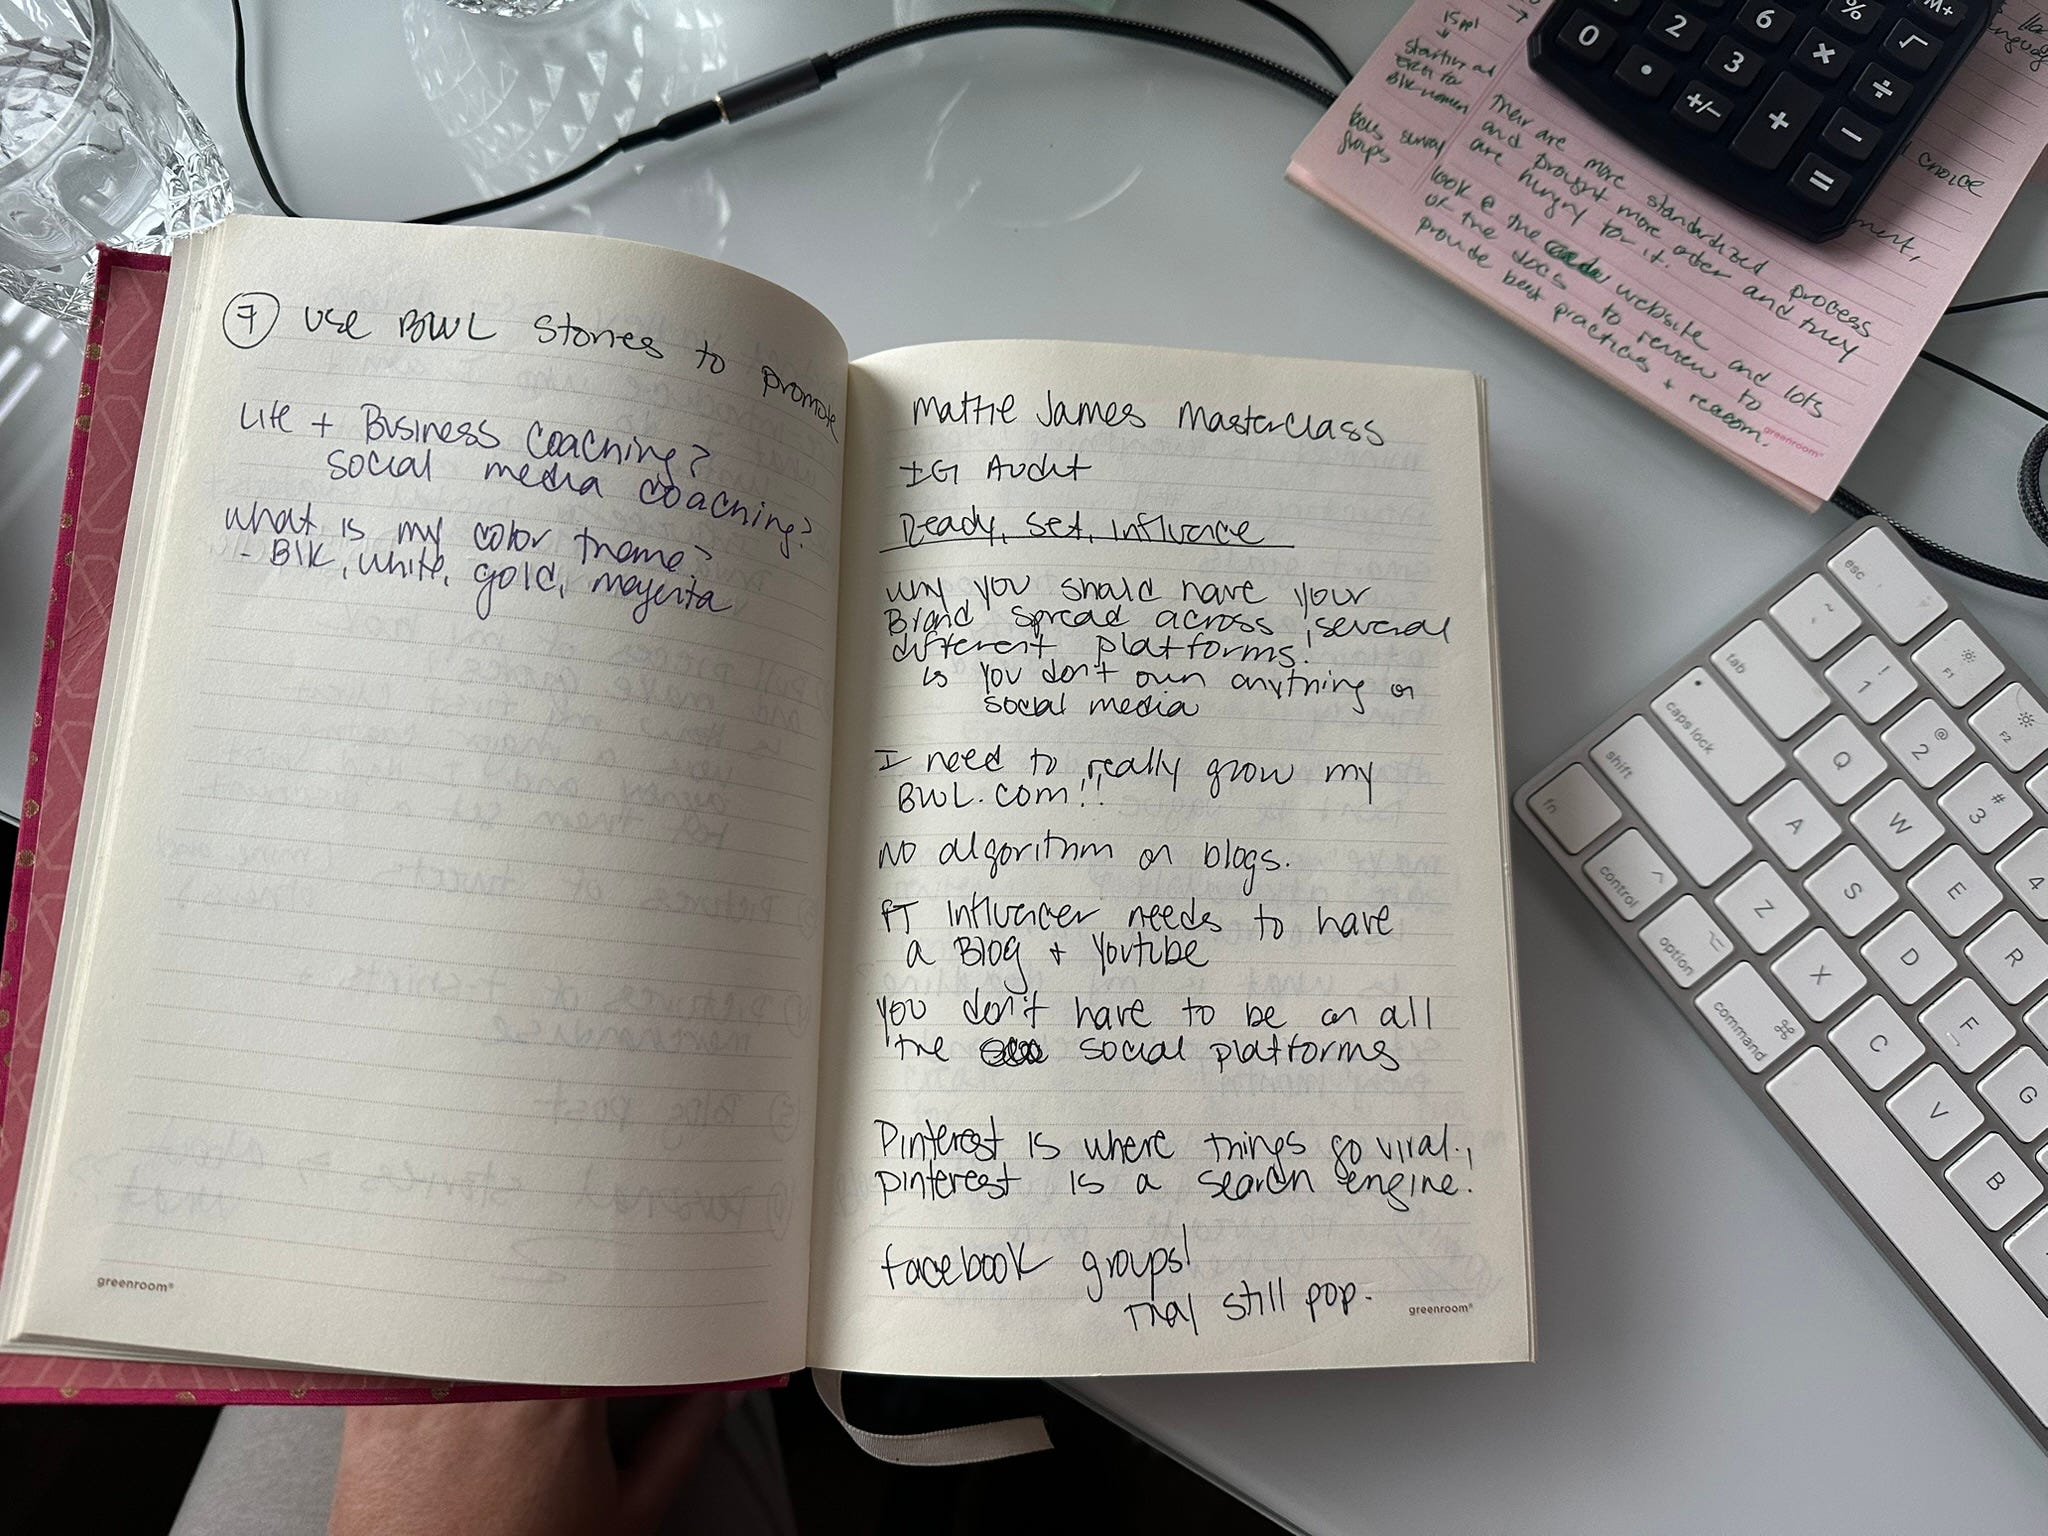 7 Use BWL Stories to promote
Life + Business Coaching?
social media coaching?
what is my color theme?
- Blk, white, gold, magenta
greenroom®
Mattie James Masterclass
IG Audit
Ready, Set, Influence
why you should have your
Brand spread across several
different platforms!
↳ You don't own anything on
social media
I need to really grow my
BWL.com!!
No algorithm on blogs.
FT Influencer needs to have
a Blog + Youtube
You don't have to be on all
the social platforms
Pinterest is where things go viral.,
pinterest is a search engine.
facebook groups!
They still pop.
greenroom®
15 ppl
↓
starting out
Blk women
focus survey
groups
choice
ment,
Their are more standardized process
and brought more order and they
are hungry for it.
look @ the website and lots
of the docs to review to
provide best practices + reason.
greenroom®
0
2
6
%
M+
•
3
×
√
+/-
+
÷
−
=
esc
~
`
!
1
@
2
#
3
4
F1
F2
tab
Q
W
E
R
caps lock
A
S
D
F
G
shift
Z
X
C
V
B
fn
control
option
command